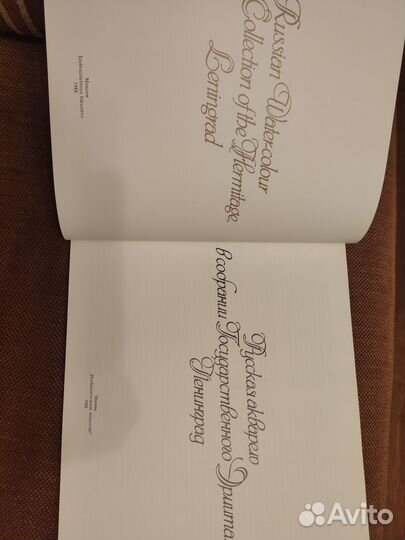 Russian Water-colour
Collection of the Hermitage,
Leningrad
Moscow
Izobrazitelnoye Iskusstvo
1988
Русская акварель
в собрании Государственного Эрмита
Ленинград
Москва
"Изобразительное искусство"
1988
Avito